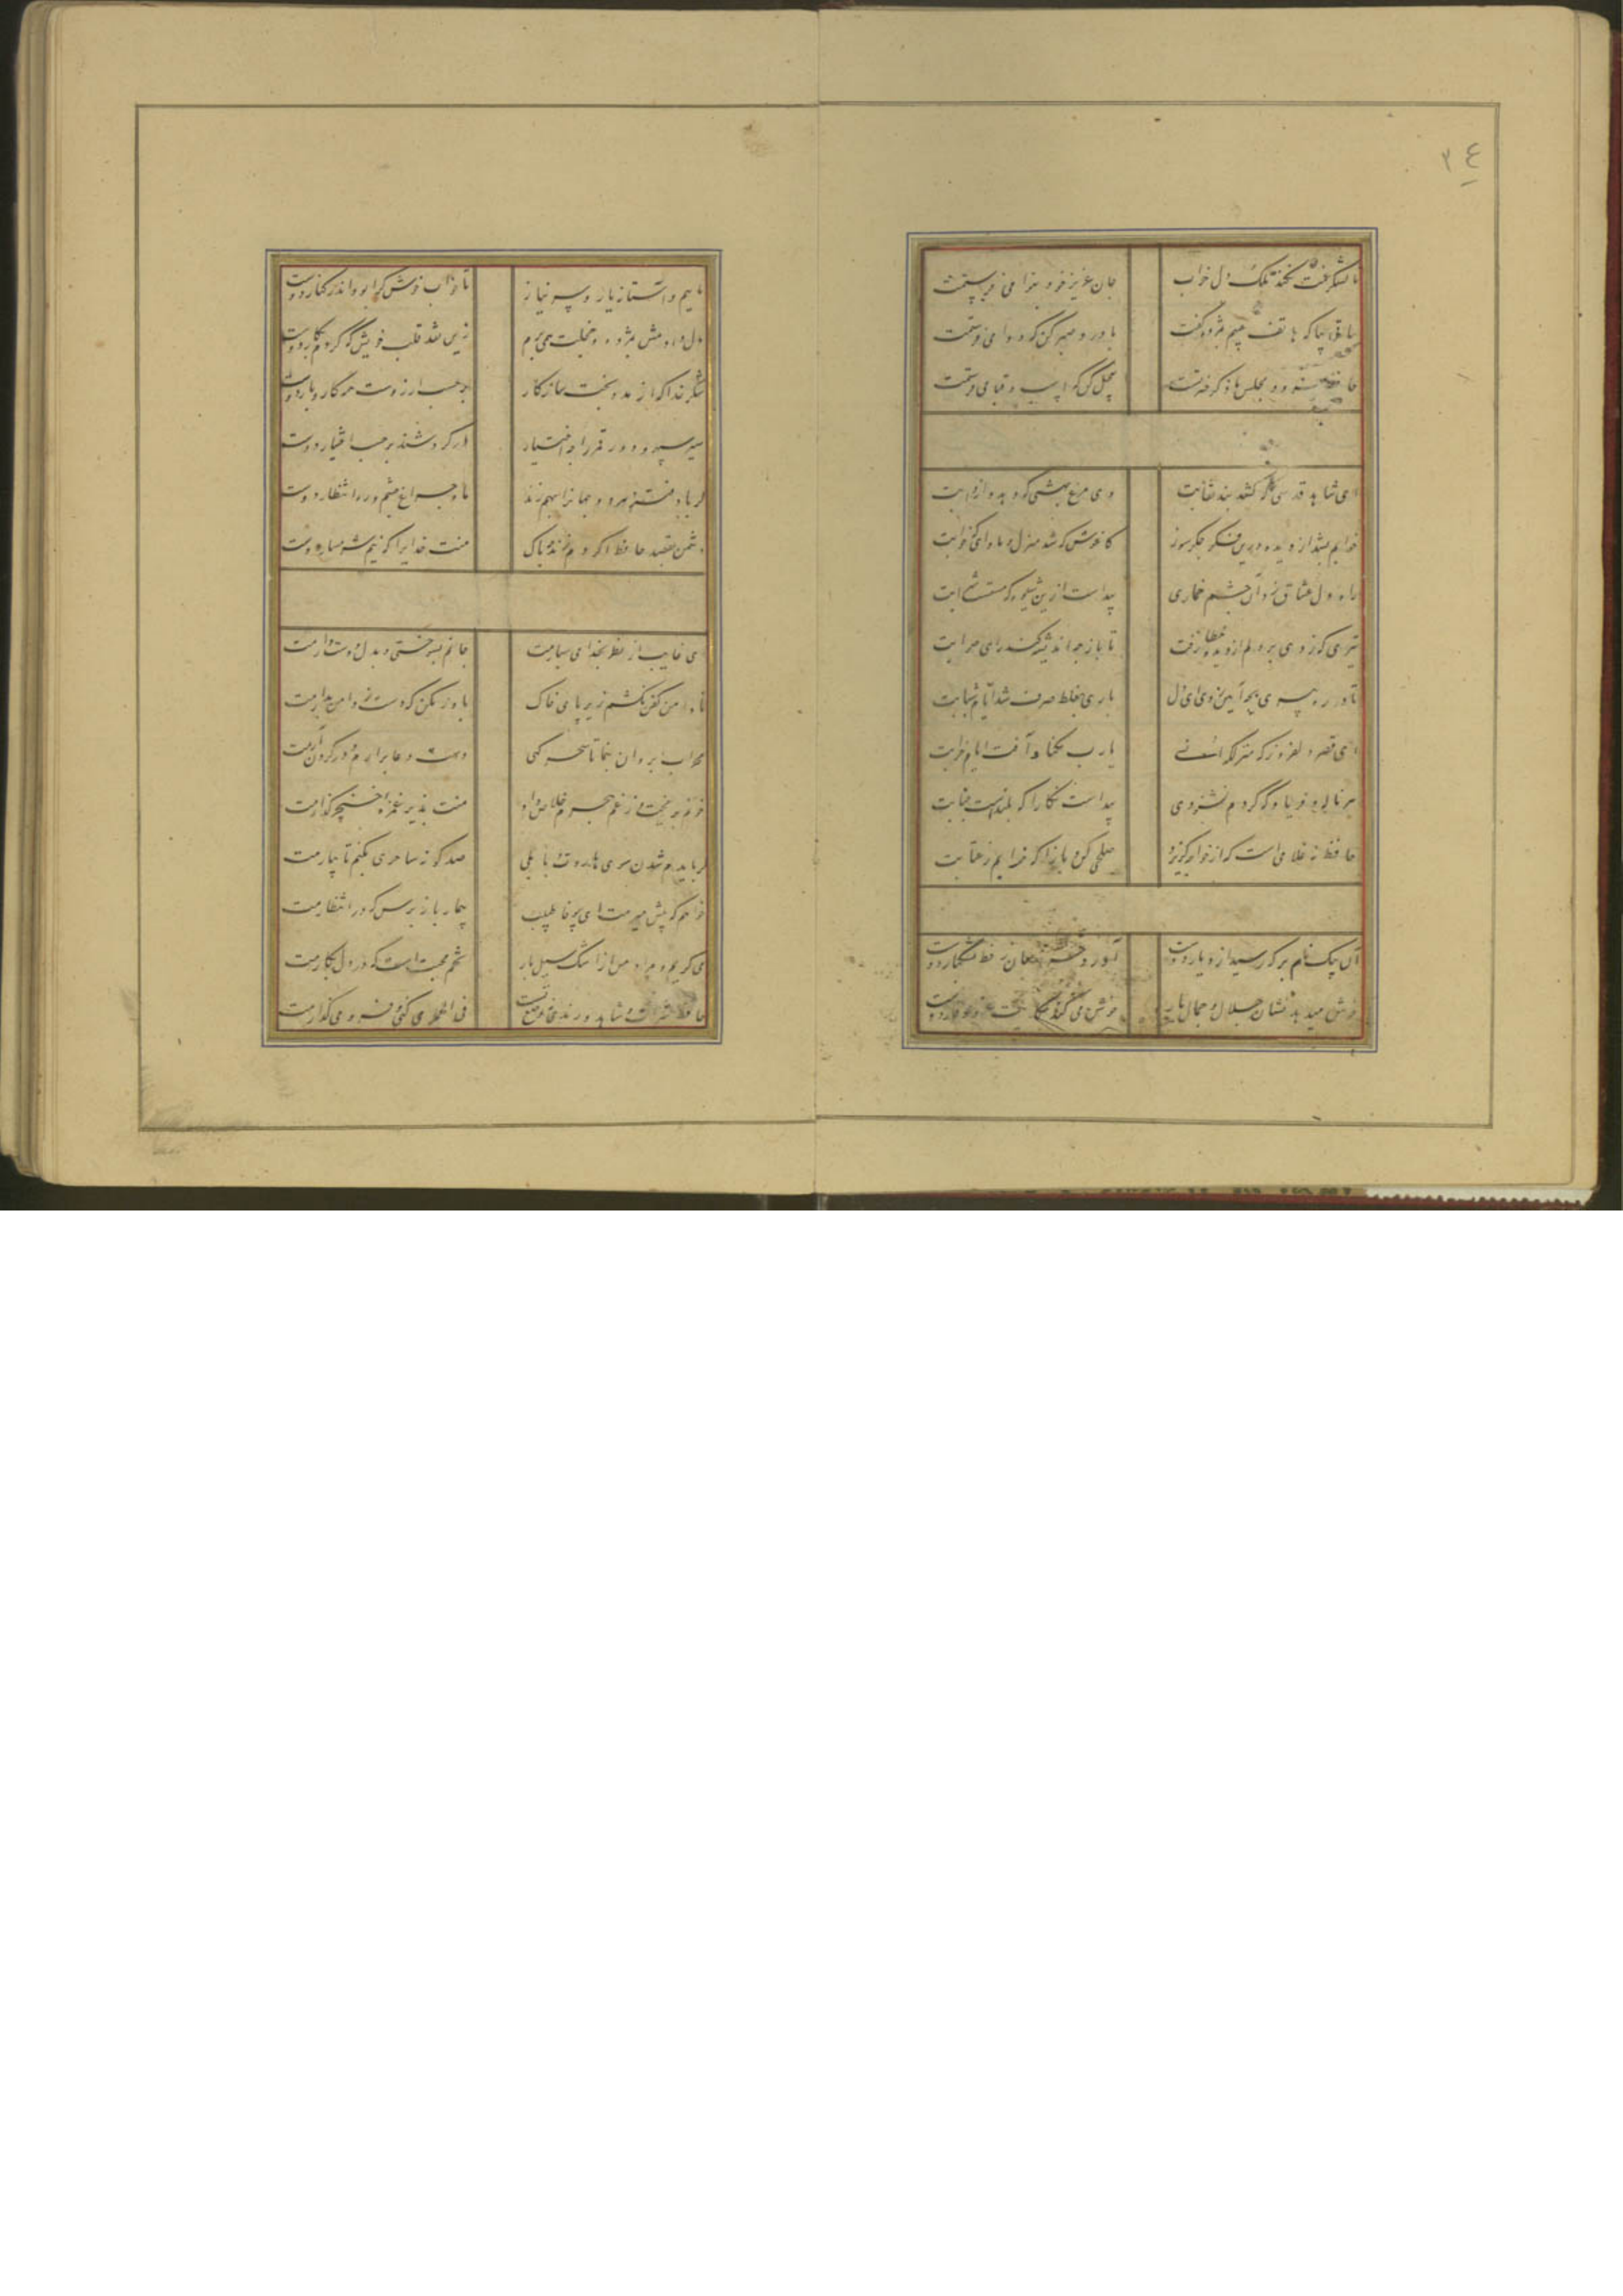 ۳۴
تا لشکر غمت نکند ملک دل خراب جان عزیز خود بنوا می فرستمت
ساقی بیا که هاتف غیبم بمژده گفت با درد صبر کن که دوا می فرستمت
حافظ سرود مجلس ما ذکر خیر تست بعجیل کن که اسب و قبا می فرستمت
ای شاهد قدسی که کشد بند نقابت وی مرغ بهشتی که دهد دانه و آبت
خوابم بشد از دیده درین فکر جگرسوز کاغوش که شد منزل و ماوای که خوابت
راه دل عشاق زد آن چشم خماری پیداست ازین شیوه که مستست شرابت
تیری که زدی بر دلم از دیده خطا رفت تا باز چه اندیشه کند رای صوابت
تا در ره پیری بچه آیین روی ای دل باری بغلط صرف شد ایام شبابت
ای قصر دلفروز که منزلگه انسی یارب مکناد آفت ایام خرابت
هر ناله و فریاد که کردم نشنودی پیداست نگارا که بلندست جنابت
حافظ نه غلامی است که از خواجه گریزد صلحی کن و بازآ که خرابم ز عتابت
آن پیک نامبر که رسید از دیار دوست آورد حرز جان ز خط مشکبار دوست
خوش میدهد نشان جلال و جمال یار خوش می کند حکایت عز و وقار دوست
ماییم و آستانه یار و سر نیاز تا خواب خوش کرا بود اندر کنار دوست
دل دادمش بمژده و خجلت همی برم زین نقد قلب خویش که کردم نثار دوست
شکر خدا که از مدد بخت سازکار بر حسب آرزوست همه کار و بار دوست
سیر سپهر و دور قمر را چه اختیار در گردشند بر حسب اختیار دوست
گر باد فتنه هر دو جهانرا بهم زند ما و چراغ چشم و ره انتظار دوست
دشمن بقصد حافظ اگر دم زند چه باک منت خدایرا که نیم شرمسار دوست
ای غایب از نظر بخدا می سپارمت جانم بسوختی و بدل دوست دارمت
تا دامن کفن نکشم زیر پای خاک باور مکن که دست ز دامن بدارمت
محراب ابروان بنما تا سحرگهی دست دعا برآرم و در گردن آرمت
خونم بریخت و ز غم هجرم خلاص داد منت پذیر غمزه خنجر گذارمت
گر بایدم شدن سوی هاروت بابلی صد گونه ساحری بکنم تا بیارمت
خواهم که پیش میرمت ای بی وفا طبیب بیمار باز پرس که در انتظارمت
می گریم و مرادم از این اشک سیل بار تخم محبت است که در دل بکارمت
حافظ شراب و شاهد و رندی نه وضع تست فی الجمله می کنی و فرو می گذارمت